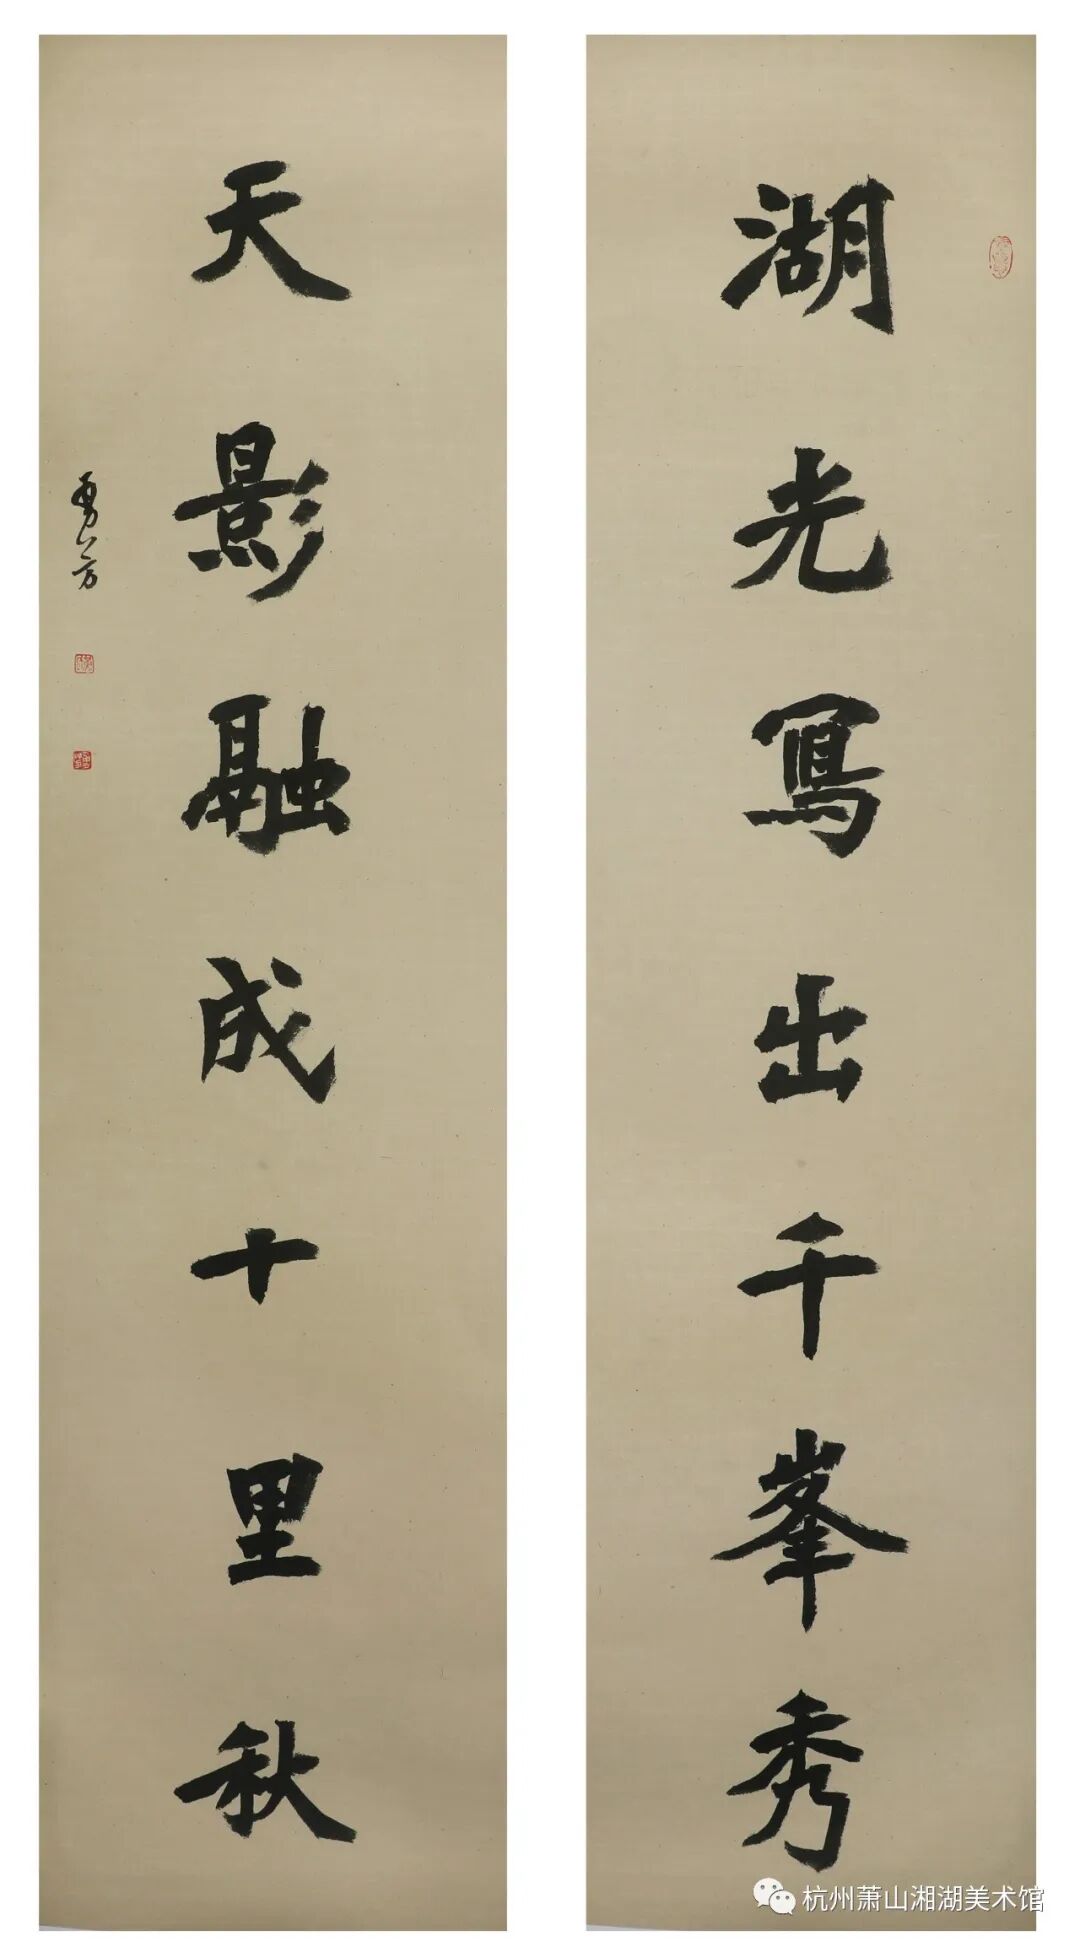 湖光寫出千峯秀
天影融成十里秋
杭州萧山湘湖美术馆